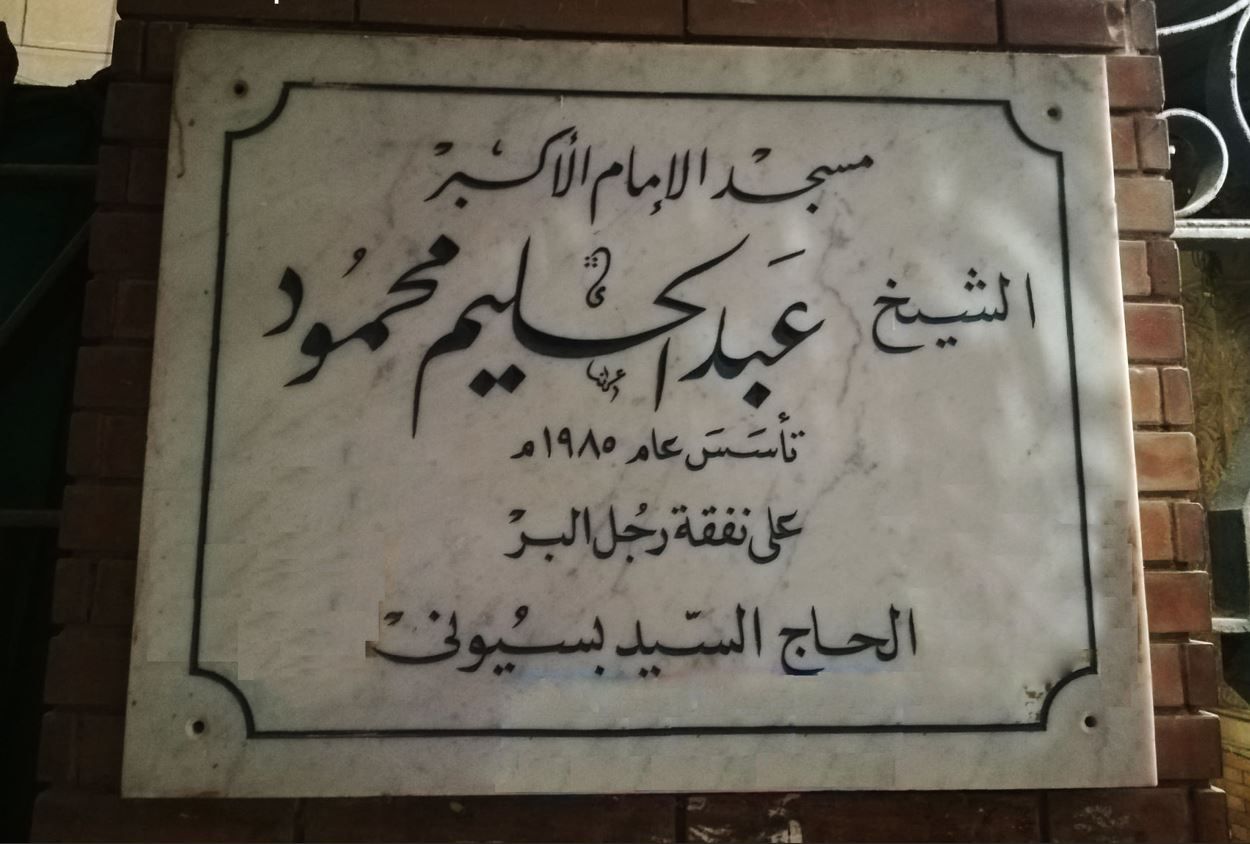 مسجد الإمام الأكبر
الشيخ عبد الحليم محمود
تأسسَسَ عام ١٩٨٥م
على نفقة رجُل البر
الحاج السيّد بسيُونى